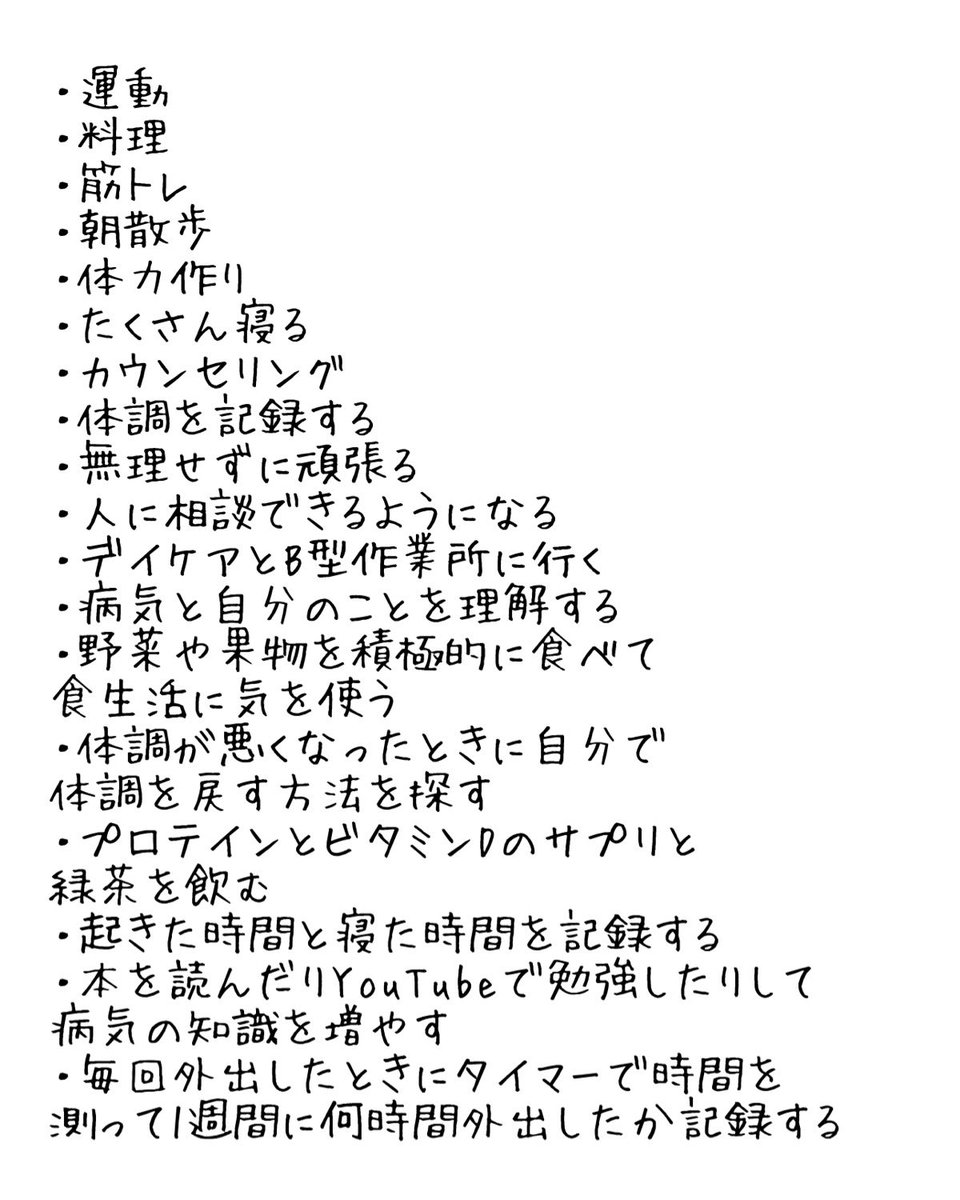 ・運動
・料理
・筋トレ
・朝散歩
・体力作り
・たくさん寝る
・カウンセリング
・体調を記録する
・無理せずに頑張る
・人に相談できるようになる
・デイケアとB型作業所に行く
・病気と自分のことを理解する
・野菜や果物を積極的に食べて
食生活に気を使う
・体調が悪くなったときに自分で
体調を戻す方法を探す
・プロテインとビタミンDのサプリと
緑茶を飲む
・起きた時間と寝た時間を記録する
・本を読んだりYouTubeで勉強したりして
病気の知識を増やす
・毎回外出したときにタイマーで時間を
測って1週間に何時間外出したか記録する